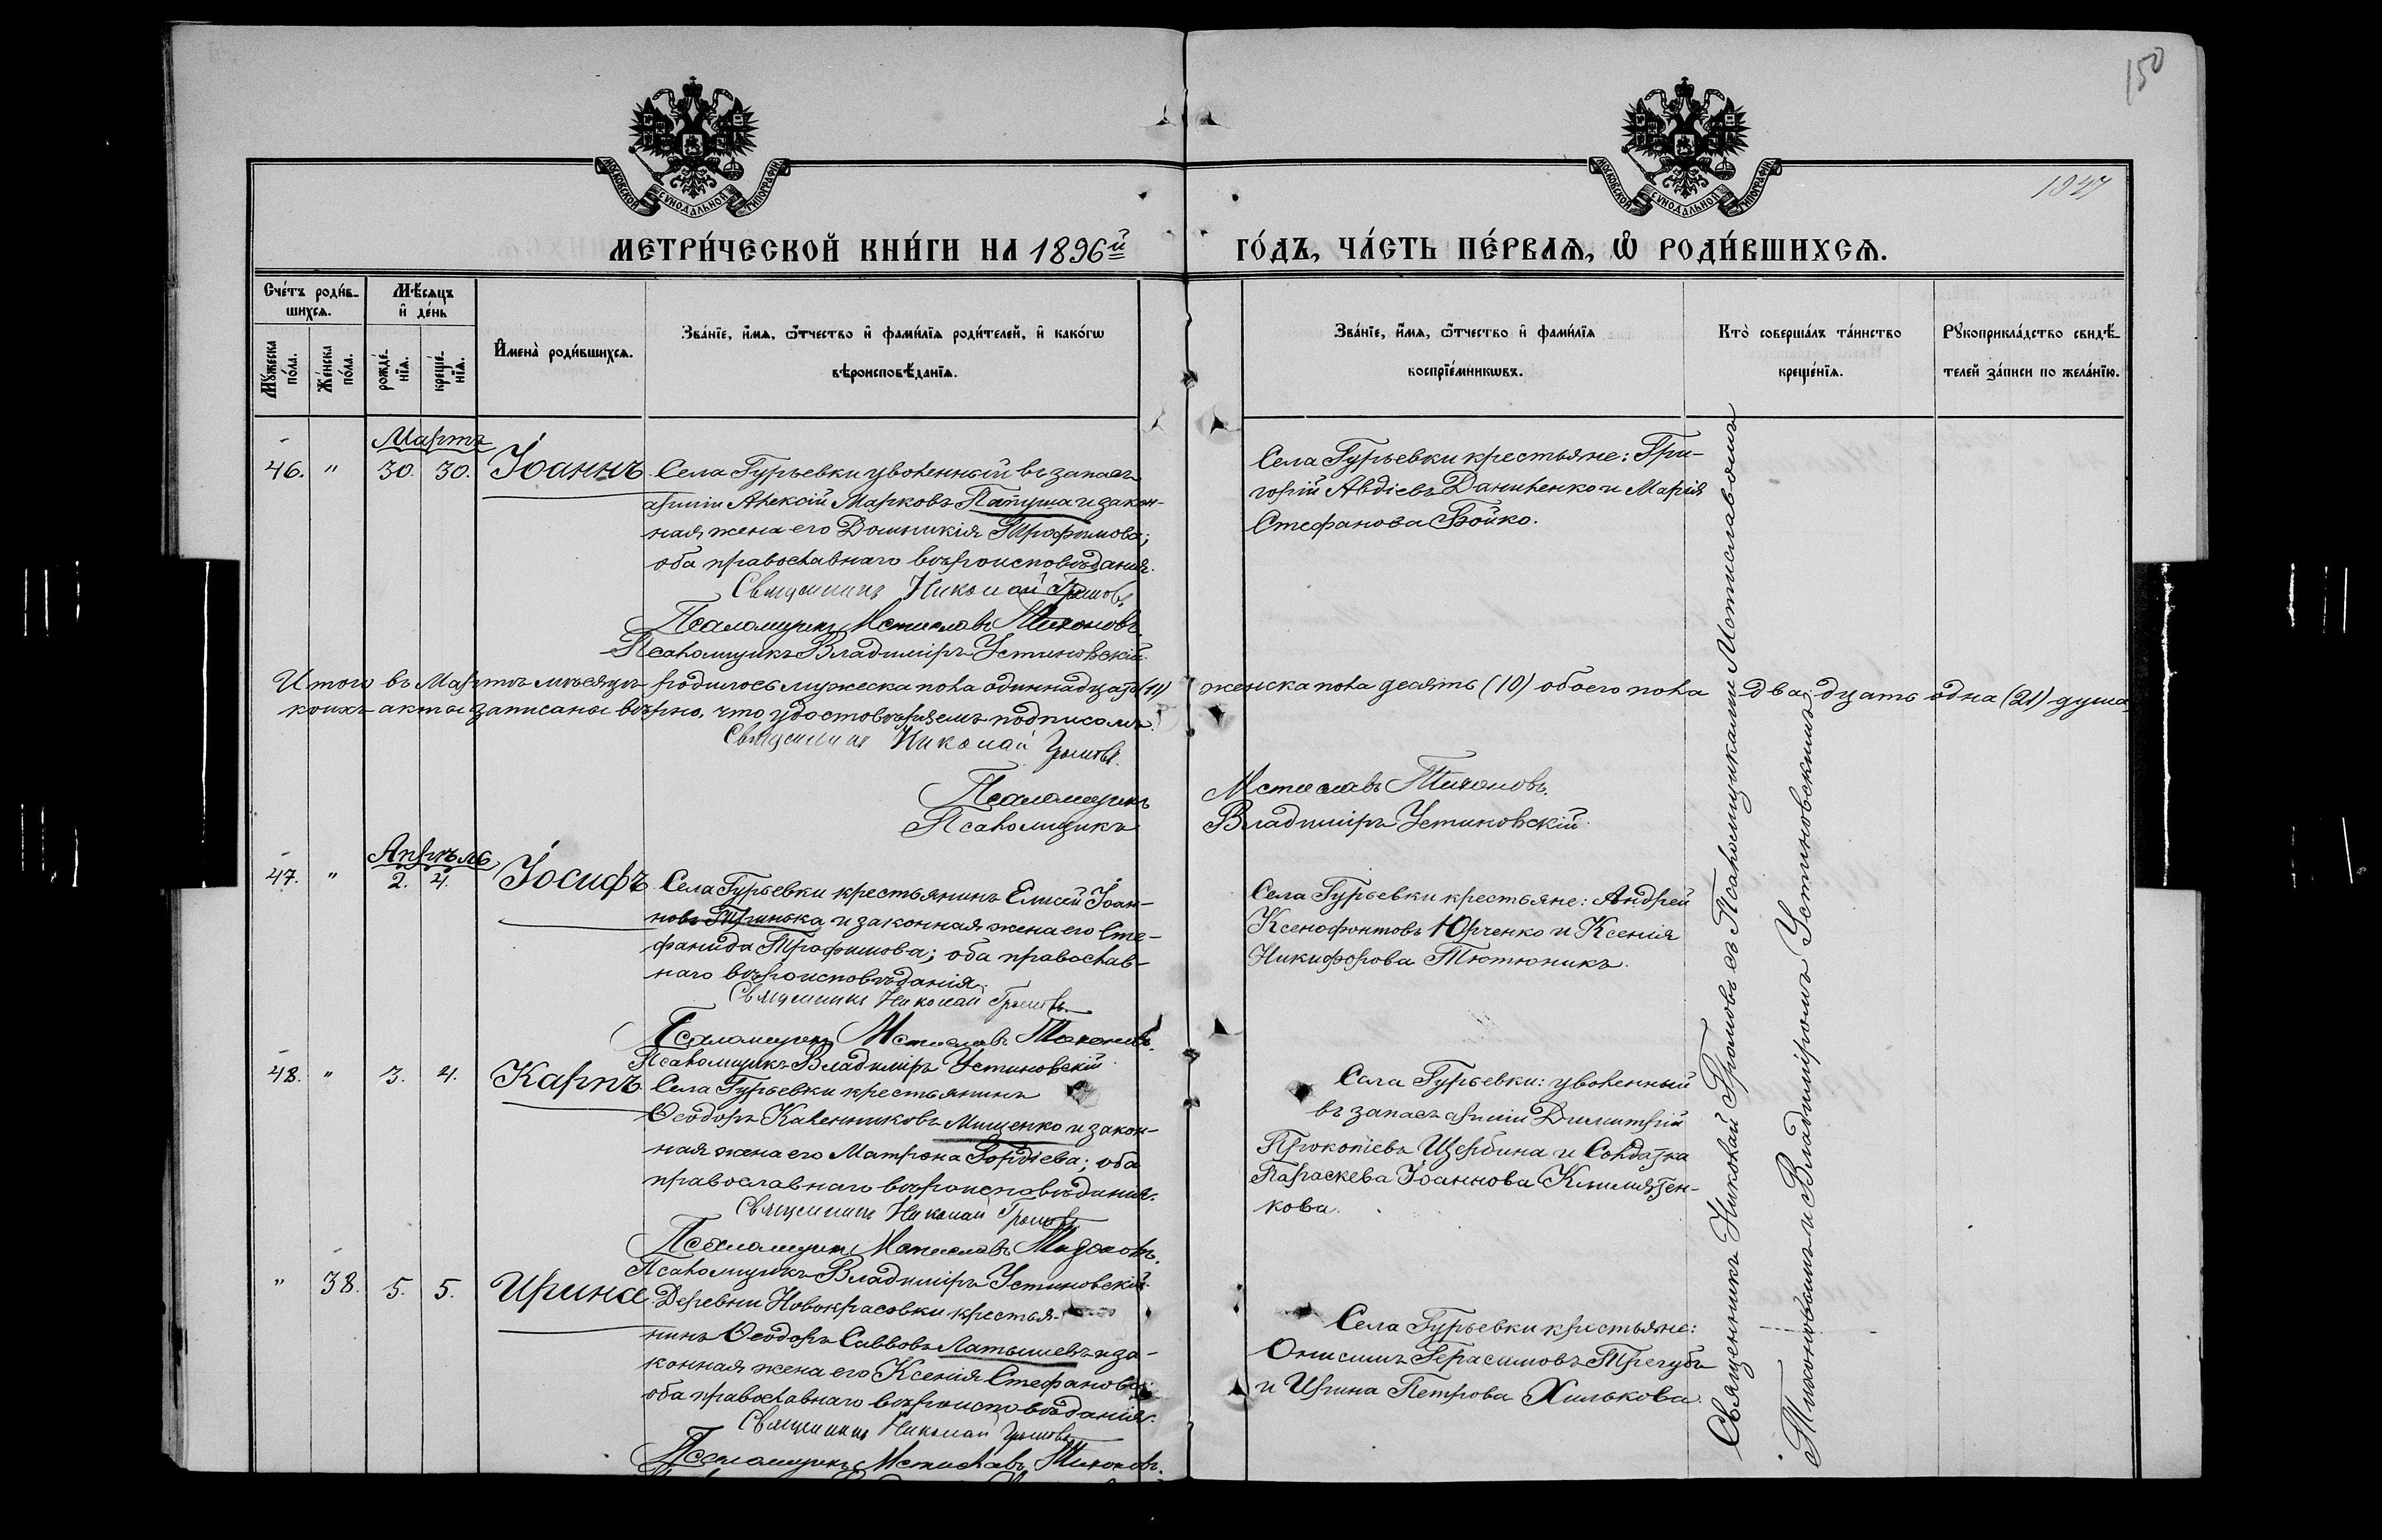 150
1847
МОСКОВСКОЙ СУНОДАЛЬНОЙ ТИПОГРАФІИ
МОСКОВСКОЙ СУНОДАЛЬНОЙ ТИПОГРАФІИ
МЕТРИ́ЧЕСКОЙ КНИ́ГИ НА 1896й
ГО́ДЪ, ЧА́СТЬ ПЕ́РВАѦ, Ѽ РОДИ́ВШИХСѦ.
Сче́тъ роди́в-
шихсѧ.
Мꙋ́жеска по́ла.
Же́нска по́ла.
Мѣ́сѧцъ
и҆ де́нь
рожде́-
нїѧ.
креще́-
нїѧ.
И҆мена̀ роди́вшихсѧ.
Зва́нїе, и҆́мѧ, ѻ҆́тчество и҆ фами́лїѧ роди́телей, и҆ како́гѡ
вѣроисповѣ́данїѧ.
Зва́нїе, и҆́мѧ, ѻ҆́тчество и҆ фами́лїѧ
воспрїе́мникѡвъ.
Кто̀ соверша́лъ та́инство
креще́нїѧ.
Рꙋкоприкла́дство свидѣ́-
телей за́писи по жела́нїю.
Мартъ
46. " 30. 30. Іоаннъ
Села Гурьевки уволенный въ запасъ
арміи Алексій Марковъ Папуша и закон-
ная жена его Домникія Трофимова;
оба православнаго вѣроисповѣданія.
Священникъ Николай Громовъ.
Псаломщикъ Мстиславъ Тихоновъ.
Псаломщикъ Владиміръ Устиновскій.
Села Гурьевки крестьяне: Гри-
горій Авдіевъ Даниленко и Марія
Стефанова Бойко.
Итого въ Мартѣ мѣсяцѣ родилось мужеска пола одиннадцать (11) женска пола десять (10) обоего пола двадцать одна (21) душа,
коихъ акты записаны вѣрно, что удостовѣряемъ подписомъ.
Священникъ Николай Громовъ.
Псаломщикъ Мстиславъ Тихоновъ.
Псаломщикъ Владиміръ Устиновскій.
Апрѣль
47. " 2. 4. Іосифъ
Села Гурьевки крестьянинъ Елисей Іоан-
новъ Тринька и законная жена его Сте-
фанида Трофимова; оба православ-
наго вѣроисповѣданія.
Священникъ Николай Громовъ.
Псаломщикъ Мстиславъ Тихоновъ.
Псаломщикъ Владиміръ Устиновскій.
Села Гурьевки крестьяне: Андрей
Ксенофонтовъ Юрченко и Ксенія
Никифорова Тютюникъ.
48. " 3. 4. Карпъ
Села Гурьевки крестьянинъ
Ѳеодоръ Каленниковъ Мищенко и закон-
ная жена его Матрона Гордіева; оба
православнаго вѣроисповѣданія.
Священникъ Николай Громовъ.
Псаломщикъ Мстиславъ Тихоновъ.
Псаломщикъ Владиміръ Устиновскій.
Села Гурьевки: уволенный
въ запасъ арміи Димитрій
Прокопіевъ Щербина и Солдатка
Параскева Іоаннова
кова.
" 38. 5. 5. Ирина
Деревни Новокрасовки крестья-
нинъ Ѳеодоръ Саввовъ Латышевъ и за-
конная жена его Ксенія Стефанова;
оба православнаго вѣроисповѣданія.
Священникъ Николай Громовъ.
Псаломщикъ Мстиславъ Тихоновъ.
Села Гурьевки крестьяне:
Онисимъ Герасимовъ Трегубъ
и Ирина Петрова Хилькова.
Священникъ Николай Громовъ съ Псаломщиками Мстиславомъ
Тихоновымъ и Владиміромъ Устиновскимъ